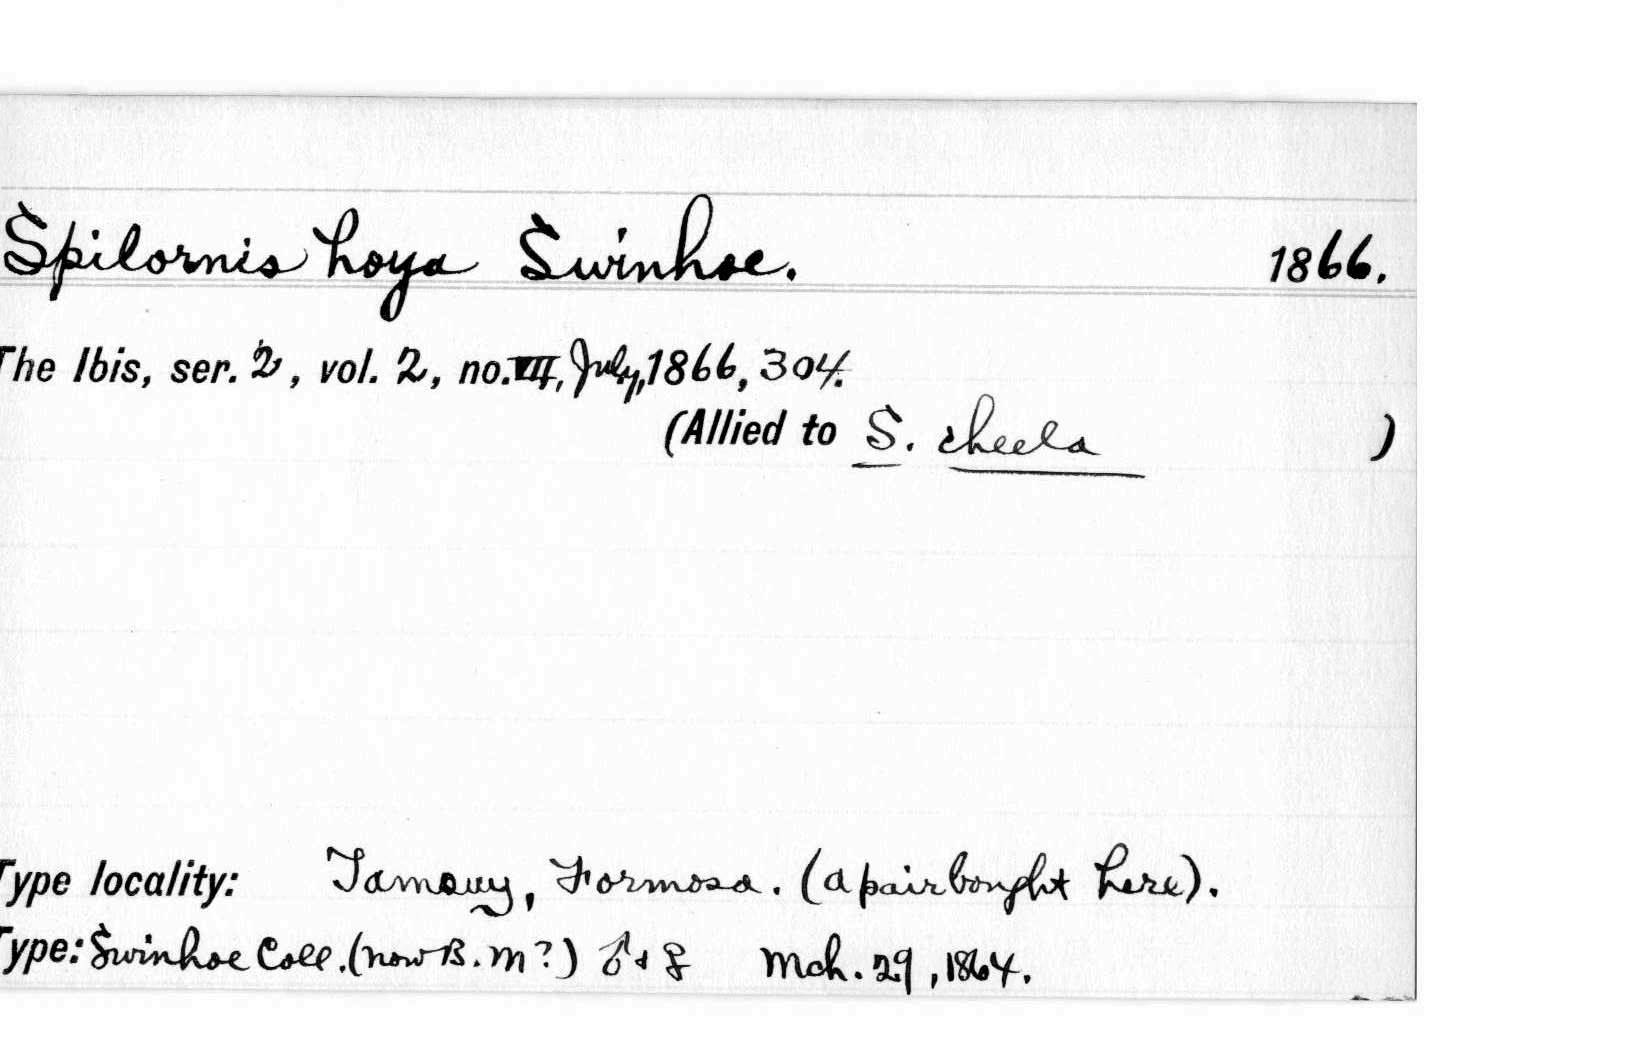 Spilornis hoya Swinhoe. 1866.
The Ibis, ser. 2, vol. 2, no. VII, July, 1866, 304.
(Allied to S. cheela )
Type locality: Tamsuy, Formosa. (a pair bought here).
Type: Swinhoe Coll. (now B. M?) ♂ + ♀ Mch. 29, 1864.